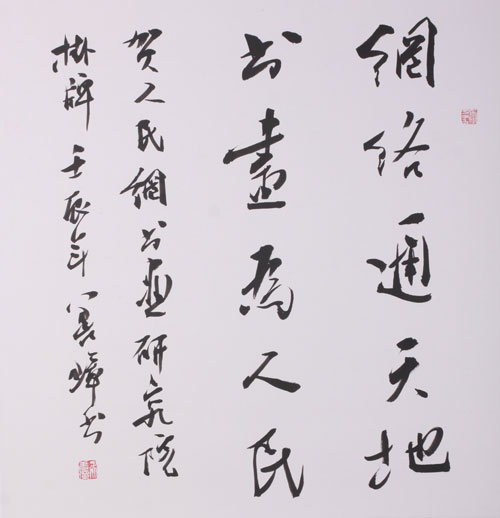 網络遍天地
书畫為人民
贺人民網书画研究院
掛牌 壬辰年 书